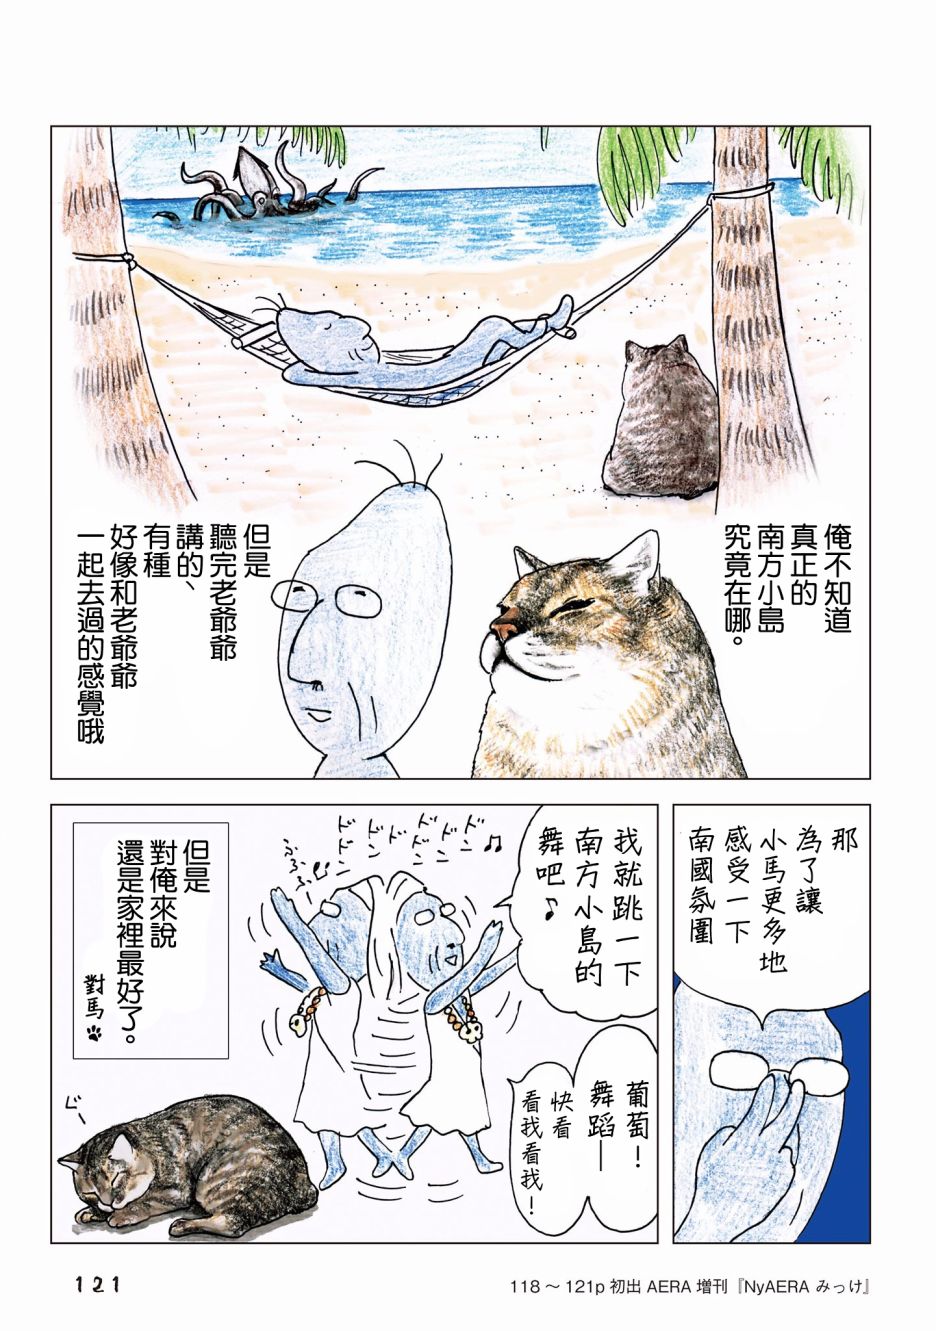 俺不知道
真正的
南方小島
究竟在哪。
但是
聽完老爺爺
講的、
有種
好像和老爺爺
一起去過的感覺哦
那
為了讓
小馬更多地
感受一下
南國氛圍
我就跳一下
南方小島的
舞吧♪
葡萄！
舞蹈——
快看
看我看我！
ドンドンドンドンドン♪
但是
對俺來說
還是家裡最好了。
對馬
121
118～121p 初出 AERA 増刊『NyAERA みっけ』